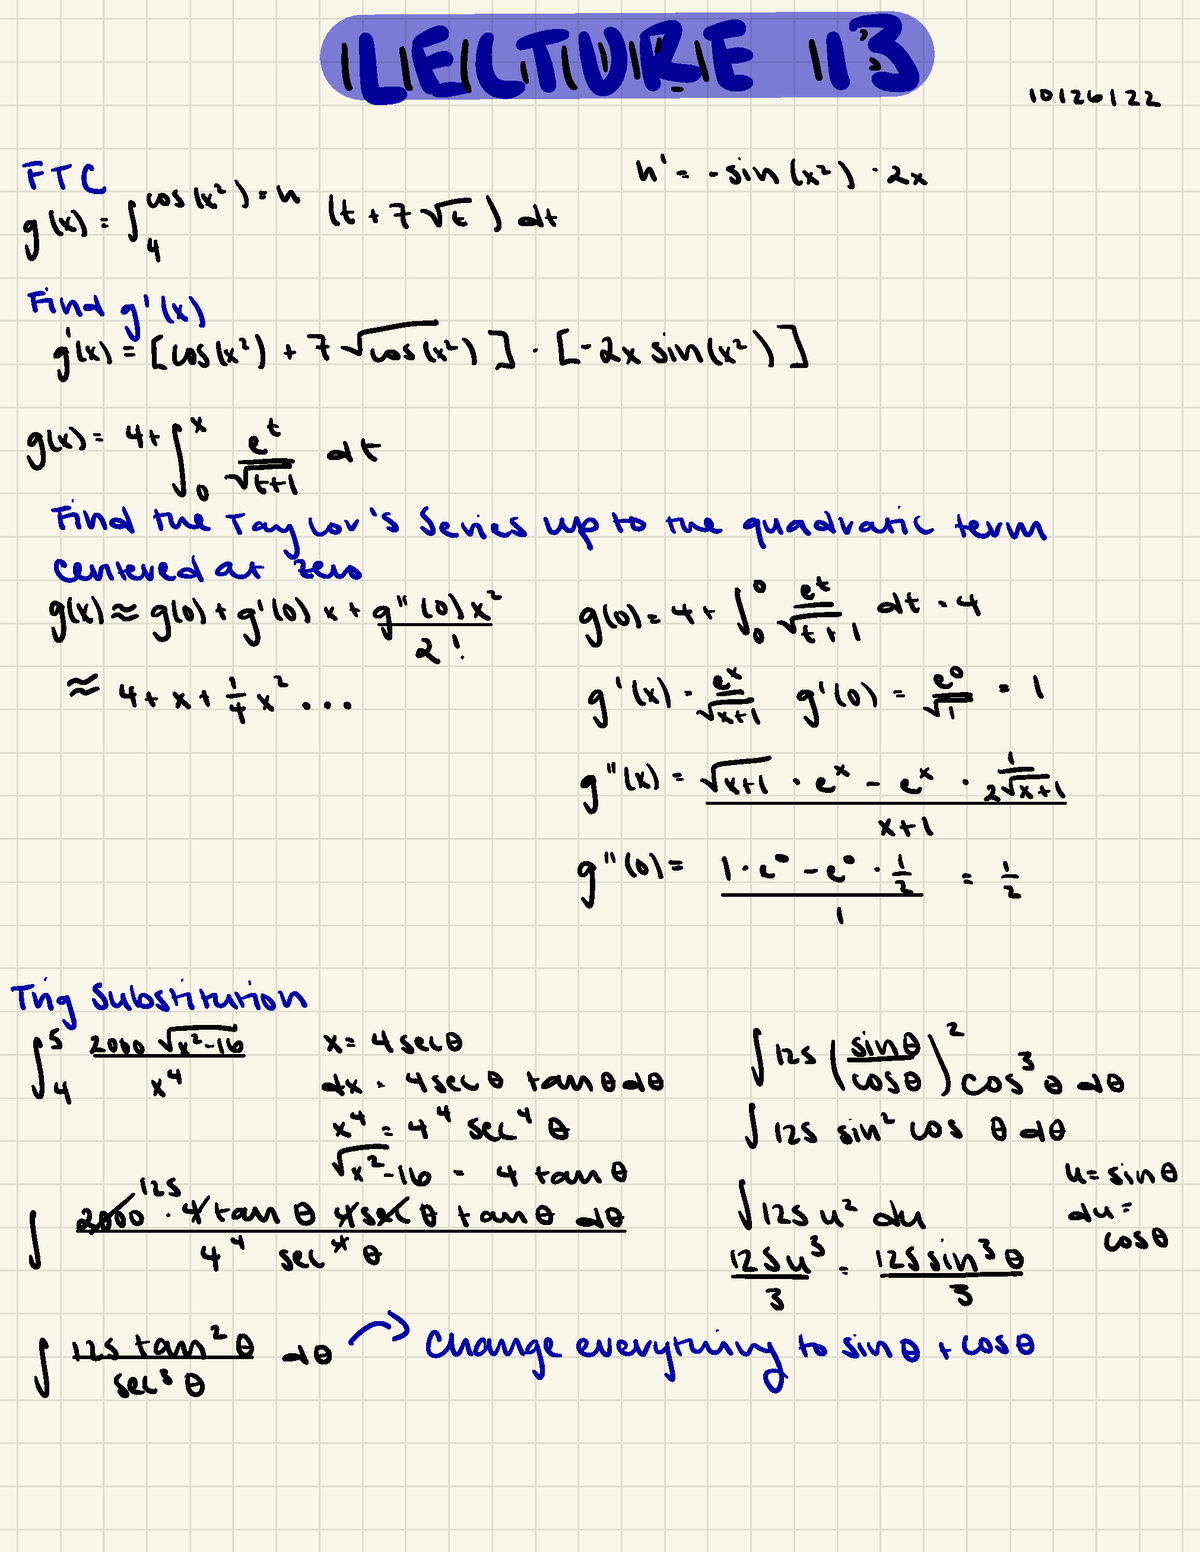 LECTURE 13
10/26/22
FTC
g(x) = ∫₄^(cos(x²) = h) (t + 7√t) dt
h' = -sin(x²) · 2x
Find g'(x)
g'(x) = [cos(x²) + 7√cos(x²)] · [-2x sin(x²)]
g(x) = 4 + ∫₀^x e^t/√(t+1) dt
Find the Taylor's Series up to the quadratic term
centered at zero
g(x) ≈ g(0) + g'(0) x + g''(0)x²/2!
≈ 4 + x + 1/4 x² ...
g(0) = 4 + ∫₀^0 e^t/√(t+1) dt = 4
g'(x) = e^x/√(x+1) g'(0) = e^0/√1 = 1
g''(x) = (√(x+1) · e^x - e^x · 1/(2√(x+1)))/(x+1)
g''(0) = (1 · e^0 - e^0 · 1/2)/1 = 1/2
Trig Substitution
∫₄^5 2000 √(x²-16)/x⁴
x = 4 sec θ
dx = 4 sec θ tan θ dθ
x⁴ = 4⁴ sec⁴ θ
√(x²-16) = 4 tan θ
∫ 2000 125 · 4 tan θ 4 sec θ tan θ dθ/(4⁴ sec⁴ θ)
∫ 125 tan² θ/sec³ θ dθ → Change everything to sin θ + cos θ
∫ 125 (sin θ/cos θ)² cos³ θ dθ
∫ 125 sin² cos θ dθ
∫ 125 u² du
u = sin θ
du =
cos θ
125u³/3 = 125 sin³ θ/3